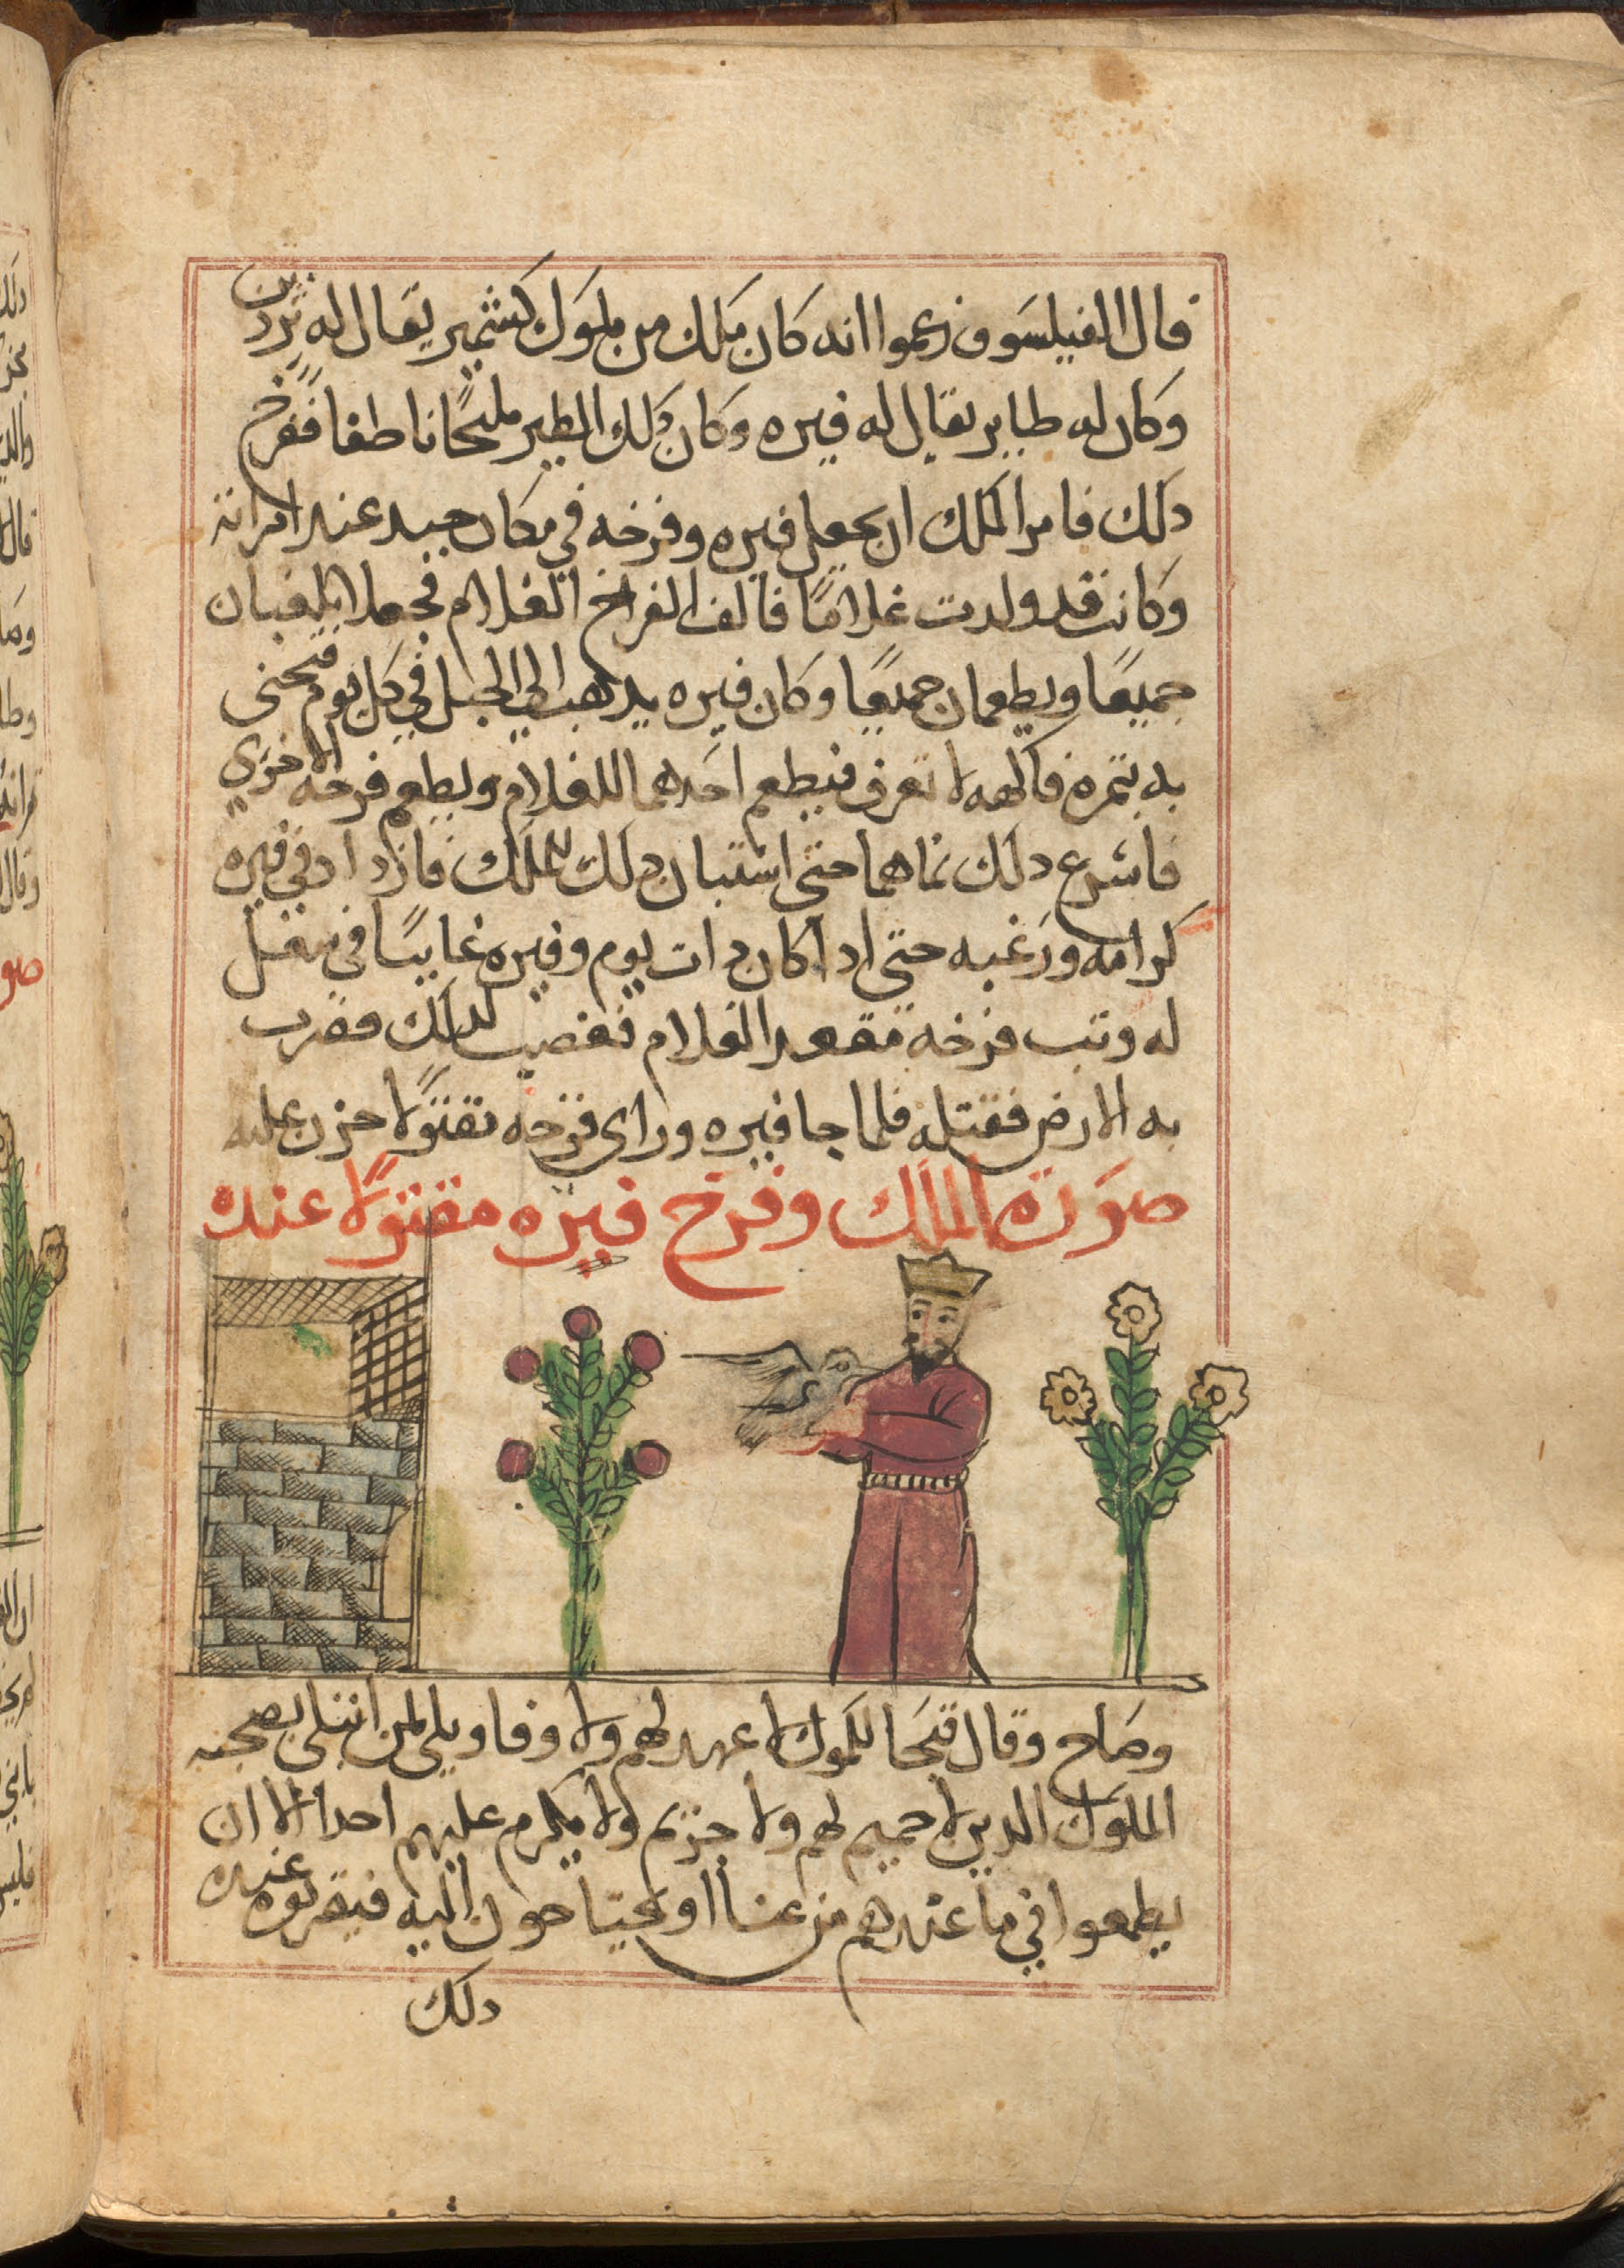 قال الفيلسوف زعموا انه كان ملك من ملوك كشمير يقال له
وكان له طاير يقال له فيره وكان دلك الطير مليحًا ناطفا ففرخ
دلك فامر الملك ان يجعل فيره وفرخه في مكان جيد عند امراته
وكانت قد ولدت غلامًا فالف الفراخ الغلام فجعلا يلعبان
جميعًا ويطعمان جميعًا وكان فيره يدهب الى الجبل في كل يوم فيجنى
به بتمره فاكهه لا تعرف فيطعم احدهما للغلام ويطعم فرخه الاخري
فاشرع دلك نماهما حتى استبان دلك للملك فازداد في فيره
كرامه ورغبه حتى ادا كان دات يوم وفيره غايبًا في شغل
له وتب فرخه فقعد الغلام فغضب لدلك فضرب
به الارض فقتله فلما جا فيره وراى فرخه مقتولًا حزن عليه
صورة الملك وفرخ فيره مقتولًا عنده
وصاح وقال قبحا للملوك لا عهد لهم ولا وفا ويلى لمن ابتلى بصحبه
الملوك الدين لا حميم لهم ولا حريم ولا يكرم عليهم احدا الا ان
يطمعوا في ما عندهم من عنا او يحتاجون اليه فيقربوه عنده
دلك